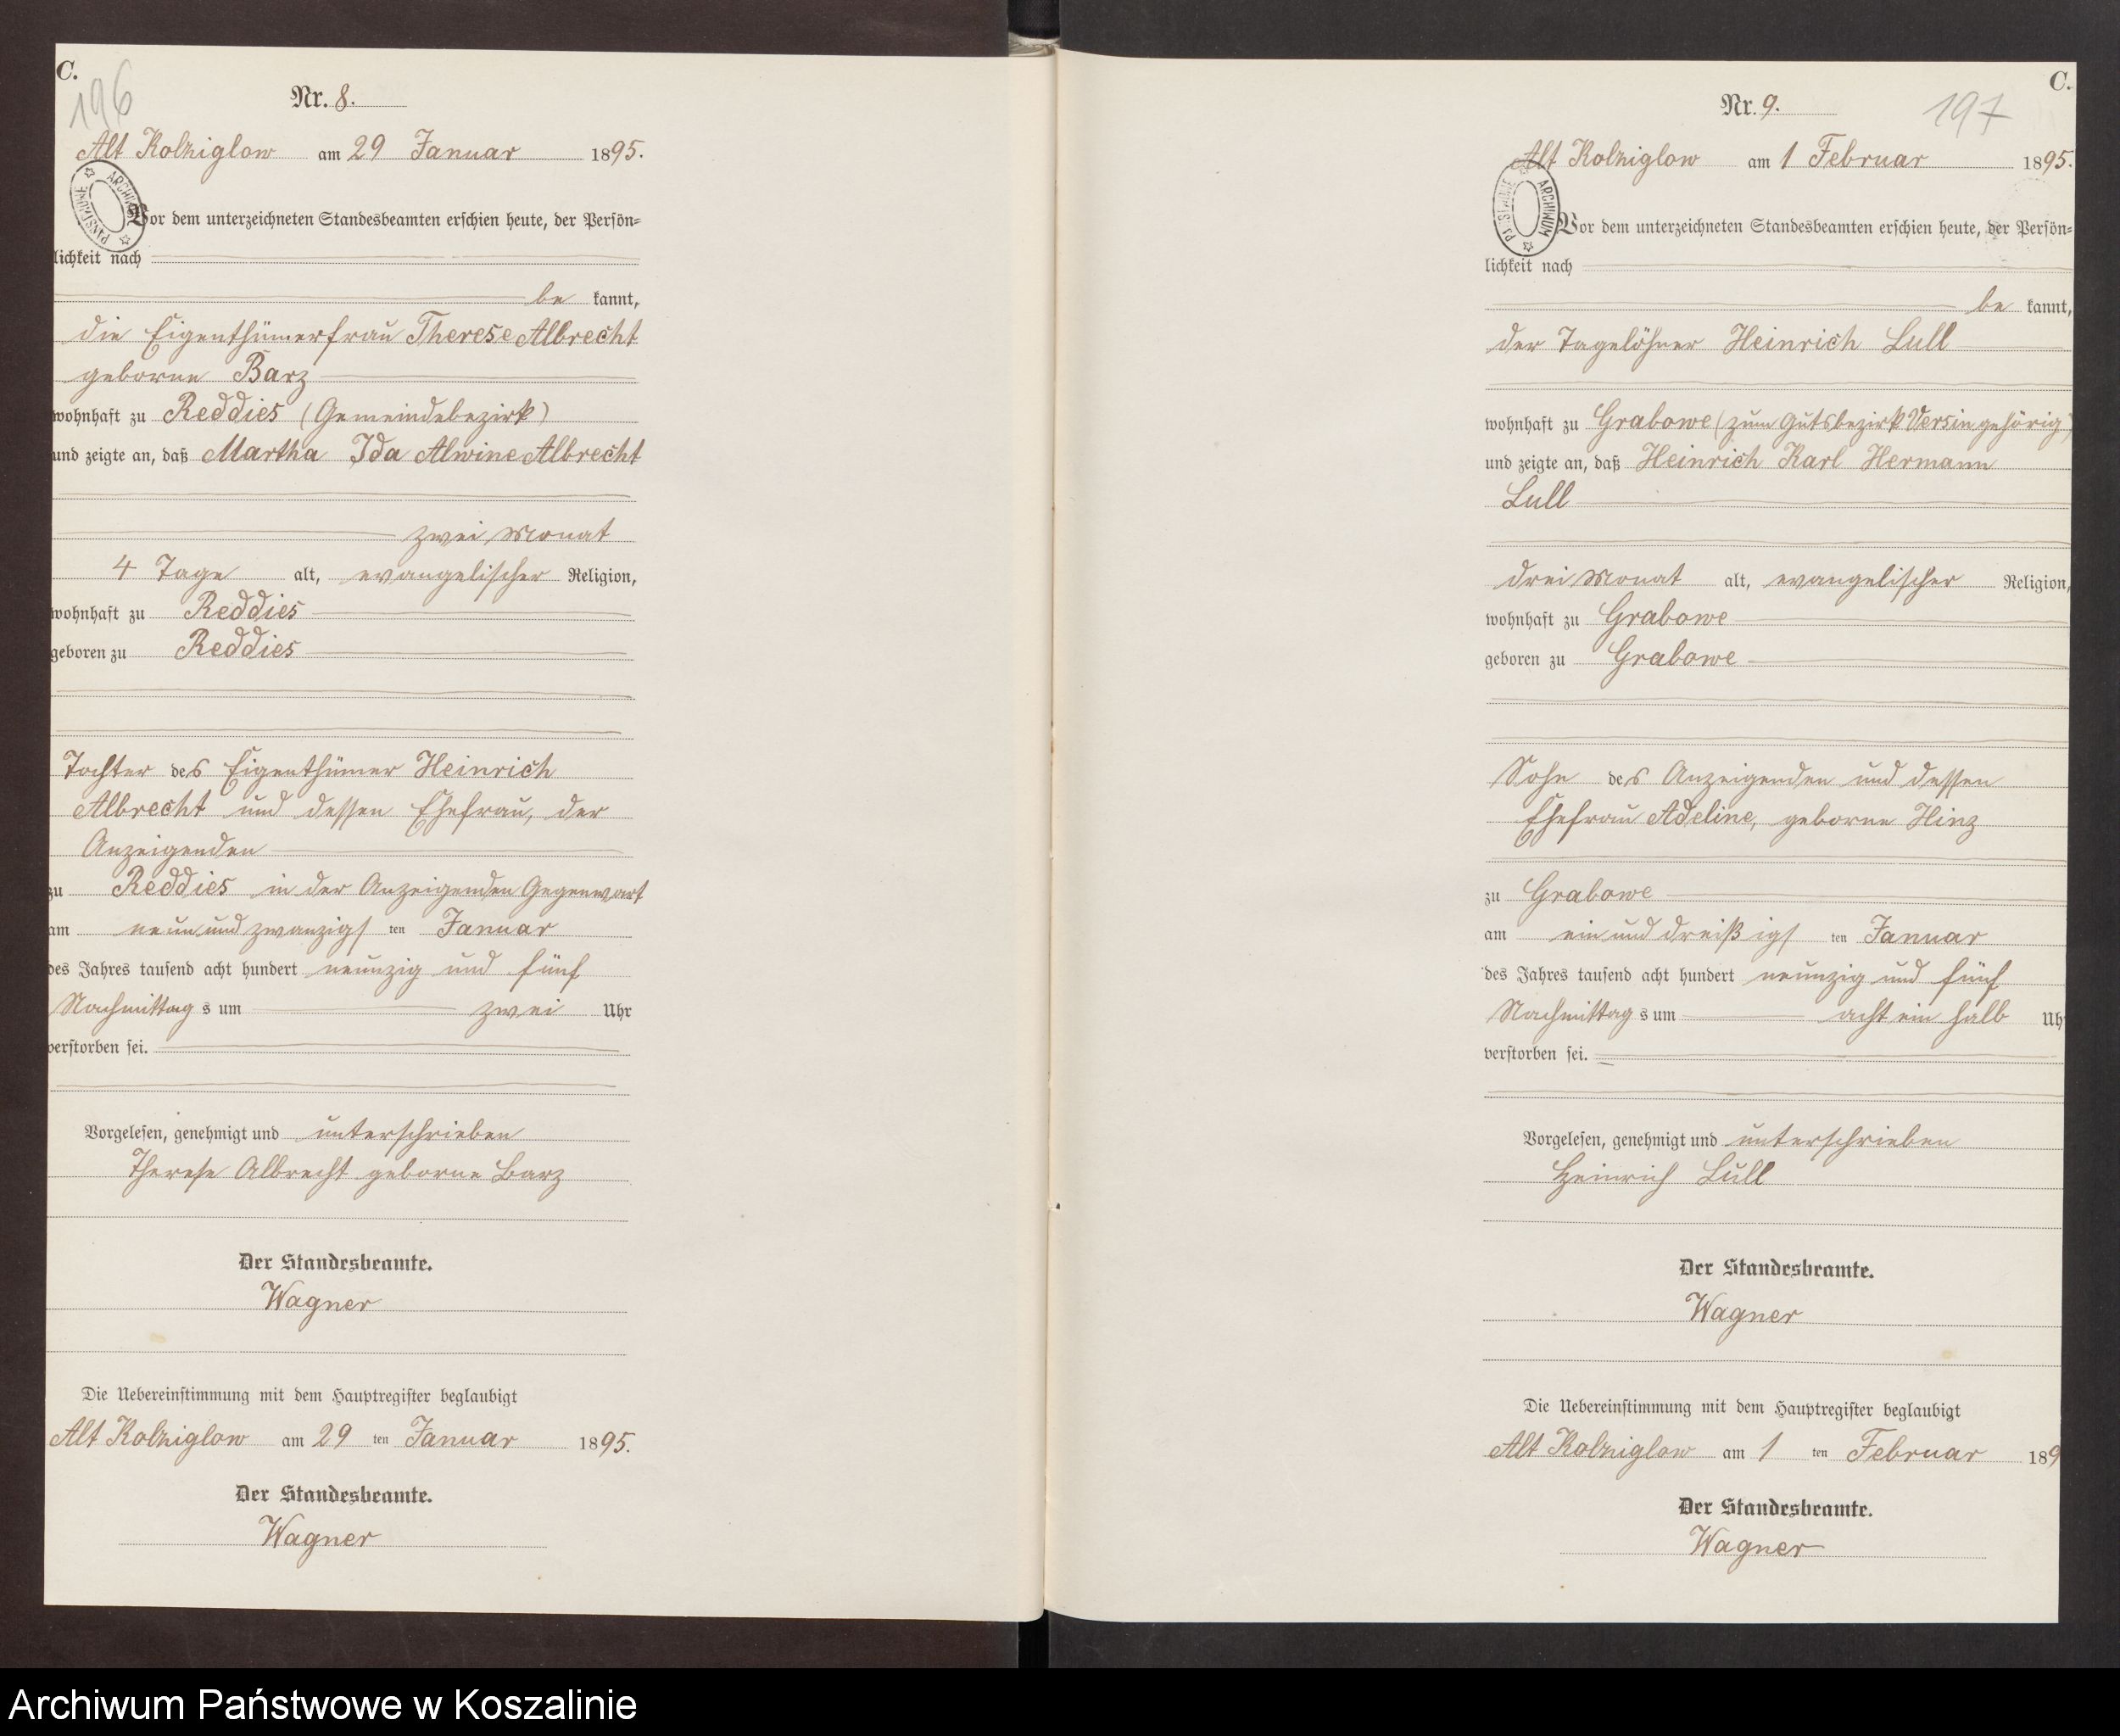 C.
196
Nr. 8.
Alt Kolziglow am 29 Januar 1895.
ARCHIWUM PAŃSTWOWE
Vor dem unterzeichneten Standesbeamten erschien heute, der Persön-
lichkeit nach
be kannt,
die Eigenthümerfrau Therese Albrecht
geborne Barz
wohnhaft zu Reddies (Gemeindebezirk)
und zeigte an, daß Martha Ida Alwine Albrecht
zwei Monat
4 Tage alt, evangelischer Religion,
wohnhaft zu Reddies
geboren zu Reddies
Tochter des Eigenthümer Heinrich
Albrecht und dessen Ehefrau, der
Anzeigenden
zu Reddies in der Anzeigenden Gegenwart
am neun und zwanzigs ten Januar
des Jahres tausend acht hundert neunzig und fünf
Nachmittag s um zwei Uhr
verstorben sei.
Vorgelesen, genehmigt und unterschrieben
Therese Albrecht geborne Barz
Der Standesbeamte.
Wagner
Die Uebereinstimmung mit dem Hauptregister beglaubigt
Alt Kolziglow am 29 ten Januar 1895.
Der Standesbeamte.
Wagner
C.
197
Nr. 9.
Alt Kolziglow am 1 Februar 1895.
ARCHIWUM PAŃSTWOWE
Vor dem unterzeichneten Standesbeamten erschien heute, der Persön-
lichkeit nach
be kannt,
der Tagelöhner Heinrich Lull
wohnhaft zu Grabowe (zum Gutsbezirk Versin gehörig)
und zeigte an, daß Heinrich Karl Hermann
Lull
drei Monat alt, evangelischer Religion,
wohnhaft zu Grabowe
geboren zu Grabowe
Sohn des Anzeigenden und dessen
Ehefrau Adeline, geborne Hinz
zu Grabowe
am ein und dreißigs ten Januar
des Jahres tausend acht hundert neunzig und fünf
Nachmittag s um acht ein halb Uh
verstorben sei.
Vorgelesen, genehmigt und unterschrieben
Heinrich Lull
Der Standesbeamte.
Wagner
Die Uebereinstimmung mit dem Hauptregister beglaubigt
Alt Kolziglow am 1 ten Februar 189
Der Standesbeamte.
Wagner
Archiwum Państwowe w Koszalinie